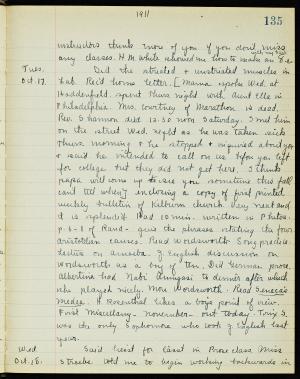 1911
135
instructors think more of you if you don't miss
any classes. H.M. White showed me how to make an
Tues.
Oct. 17.
Did the striated & unstriated muscles in
Lab. Rec'd home letter. [Mama spoke Wed. at
Haddonfield. Spent Thurs night with Aunt Ella in
Philadelphia. Mrs. Courtney of Marathon is dead.
Rev. Shannon died 12.30 noon Saturday. I met him
on the street Wed. night as he was taken sick
Thurs morning & he stopped & inquired about you
& said he intended to call on us before you left
for college but they did not get here. I think
papa will come in to see you sometime this fall
(and till when)] inclosing a copy of first printed
weekly bulletin of Kilburn church. Very neat and
it is splendid. Had 10 min. written in Philos.
p. 6-8 of Rand - give the phrases relating the four
Aristotelian causes. Read Wordsworth. Song practice.
Wordsworth as a boy of ten. Did German prose.
Albertina had Habi to dinner after which
she played nicely. More Wordsworth. Read Seneca's
Medea. H. Rosenthal likes a boy's point of view.
First Miscellany - November - out today. Troy S.
was the only Sophomore who took Q English last
year.
Wed.
Oct. 18.
Said heist for lässt in Prose class. Miss
Stroebe told me to begin working backwards in